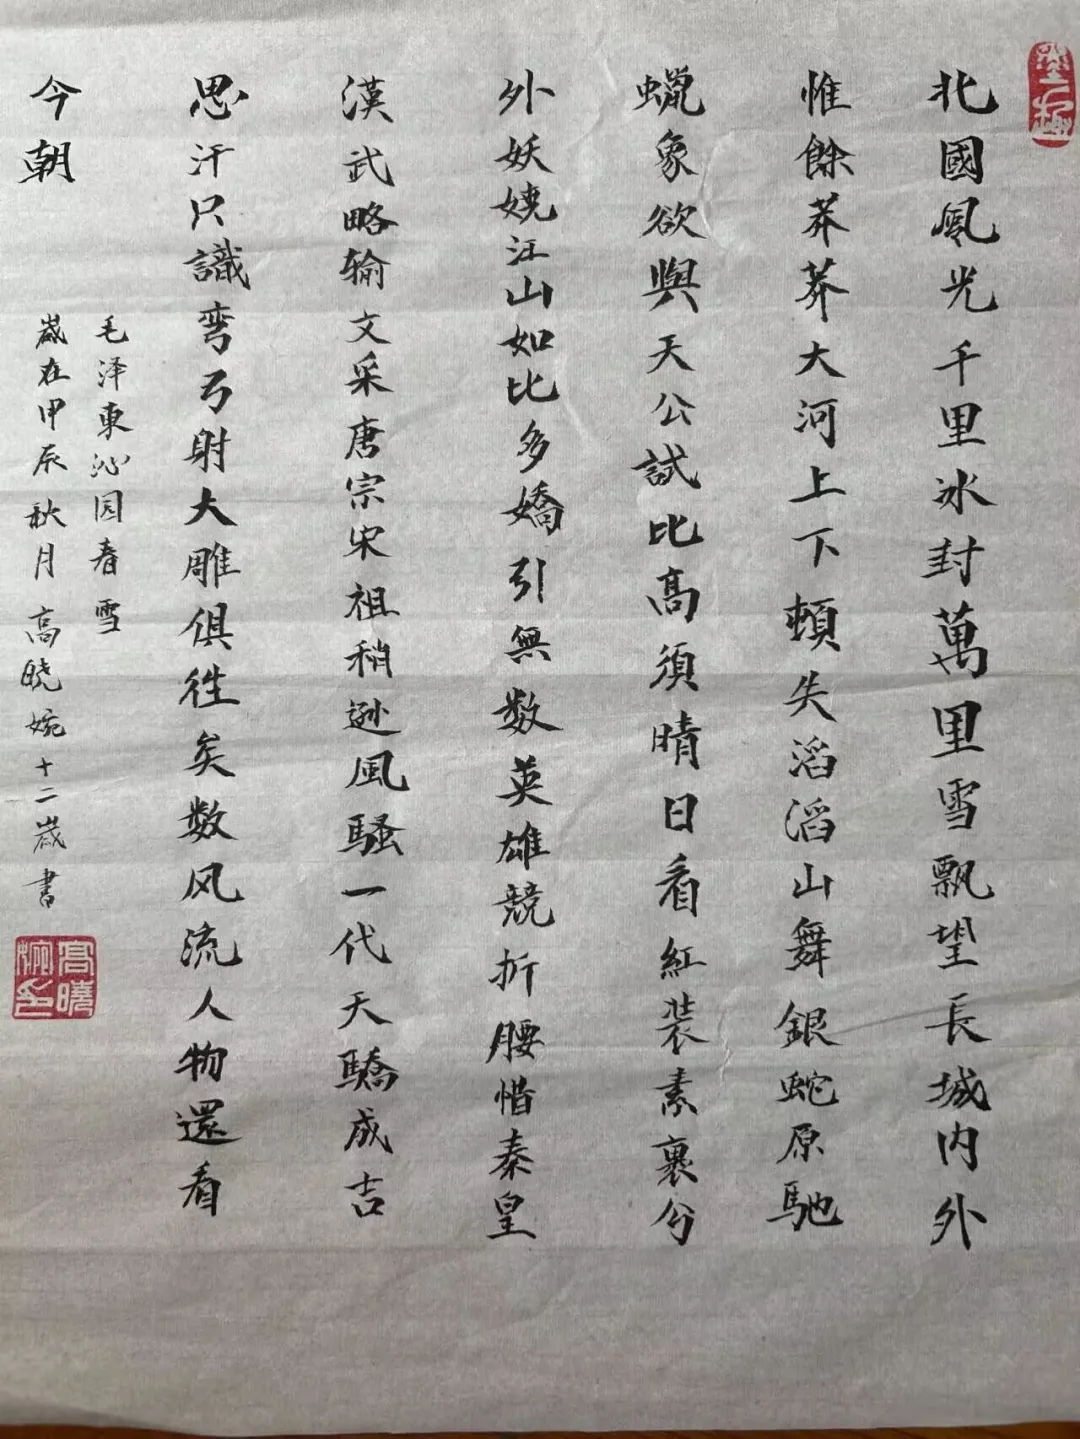 北國風光千里冰封萬里雪飄望長城内外
惟餘莽莽大河上下頓失滔滔山舞銀蛇原馳
蠟象欲與天公試比高須晴日看紅裝素裹分
外妖娆江山如比多嬌引無数英雄競折腰惜秦皇
漢武略输文采唐宗宋祖稍逊風騷一代天驕成吉
思汗只識弯弓射大雕俱徃矣数风流人物還看
今朝
毛泽東沁园春雪
歳在甲辰秋月高晓婉十二歳書
高曉婉印